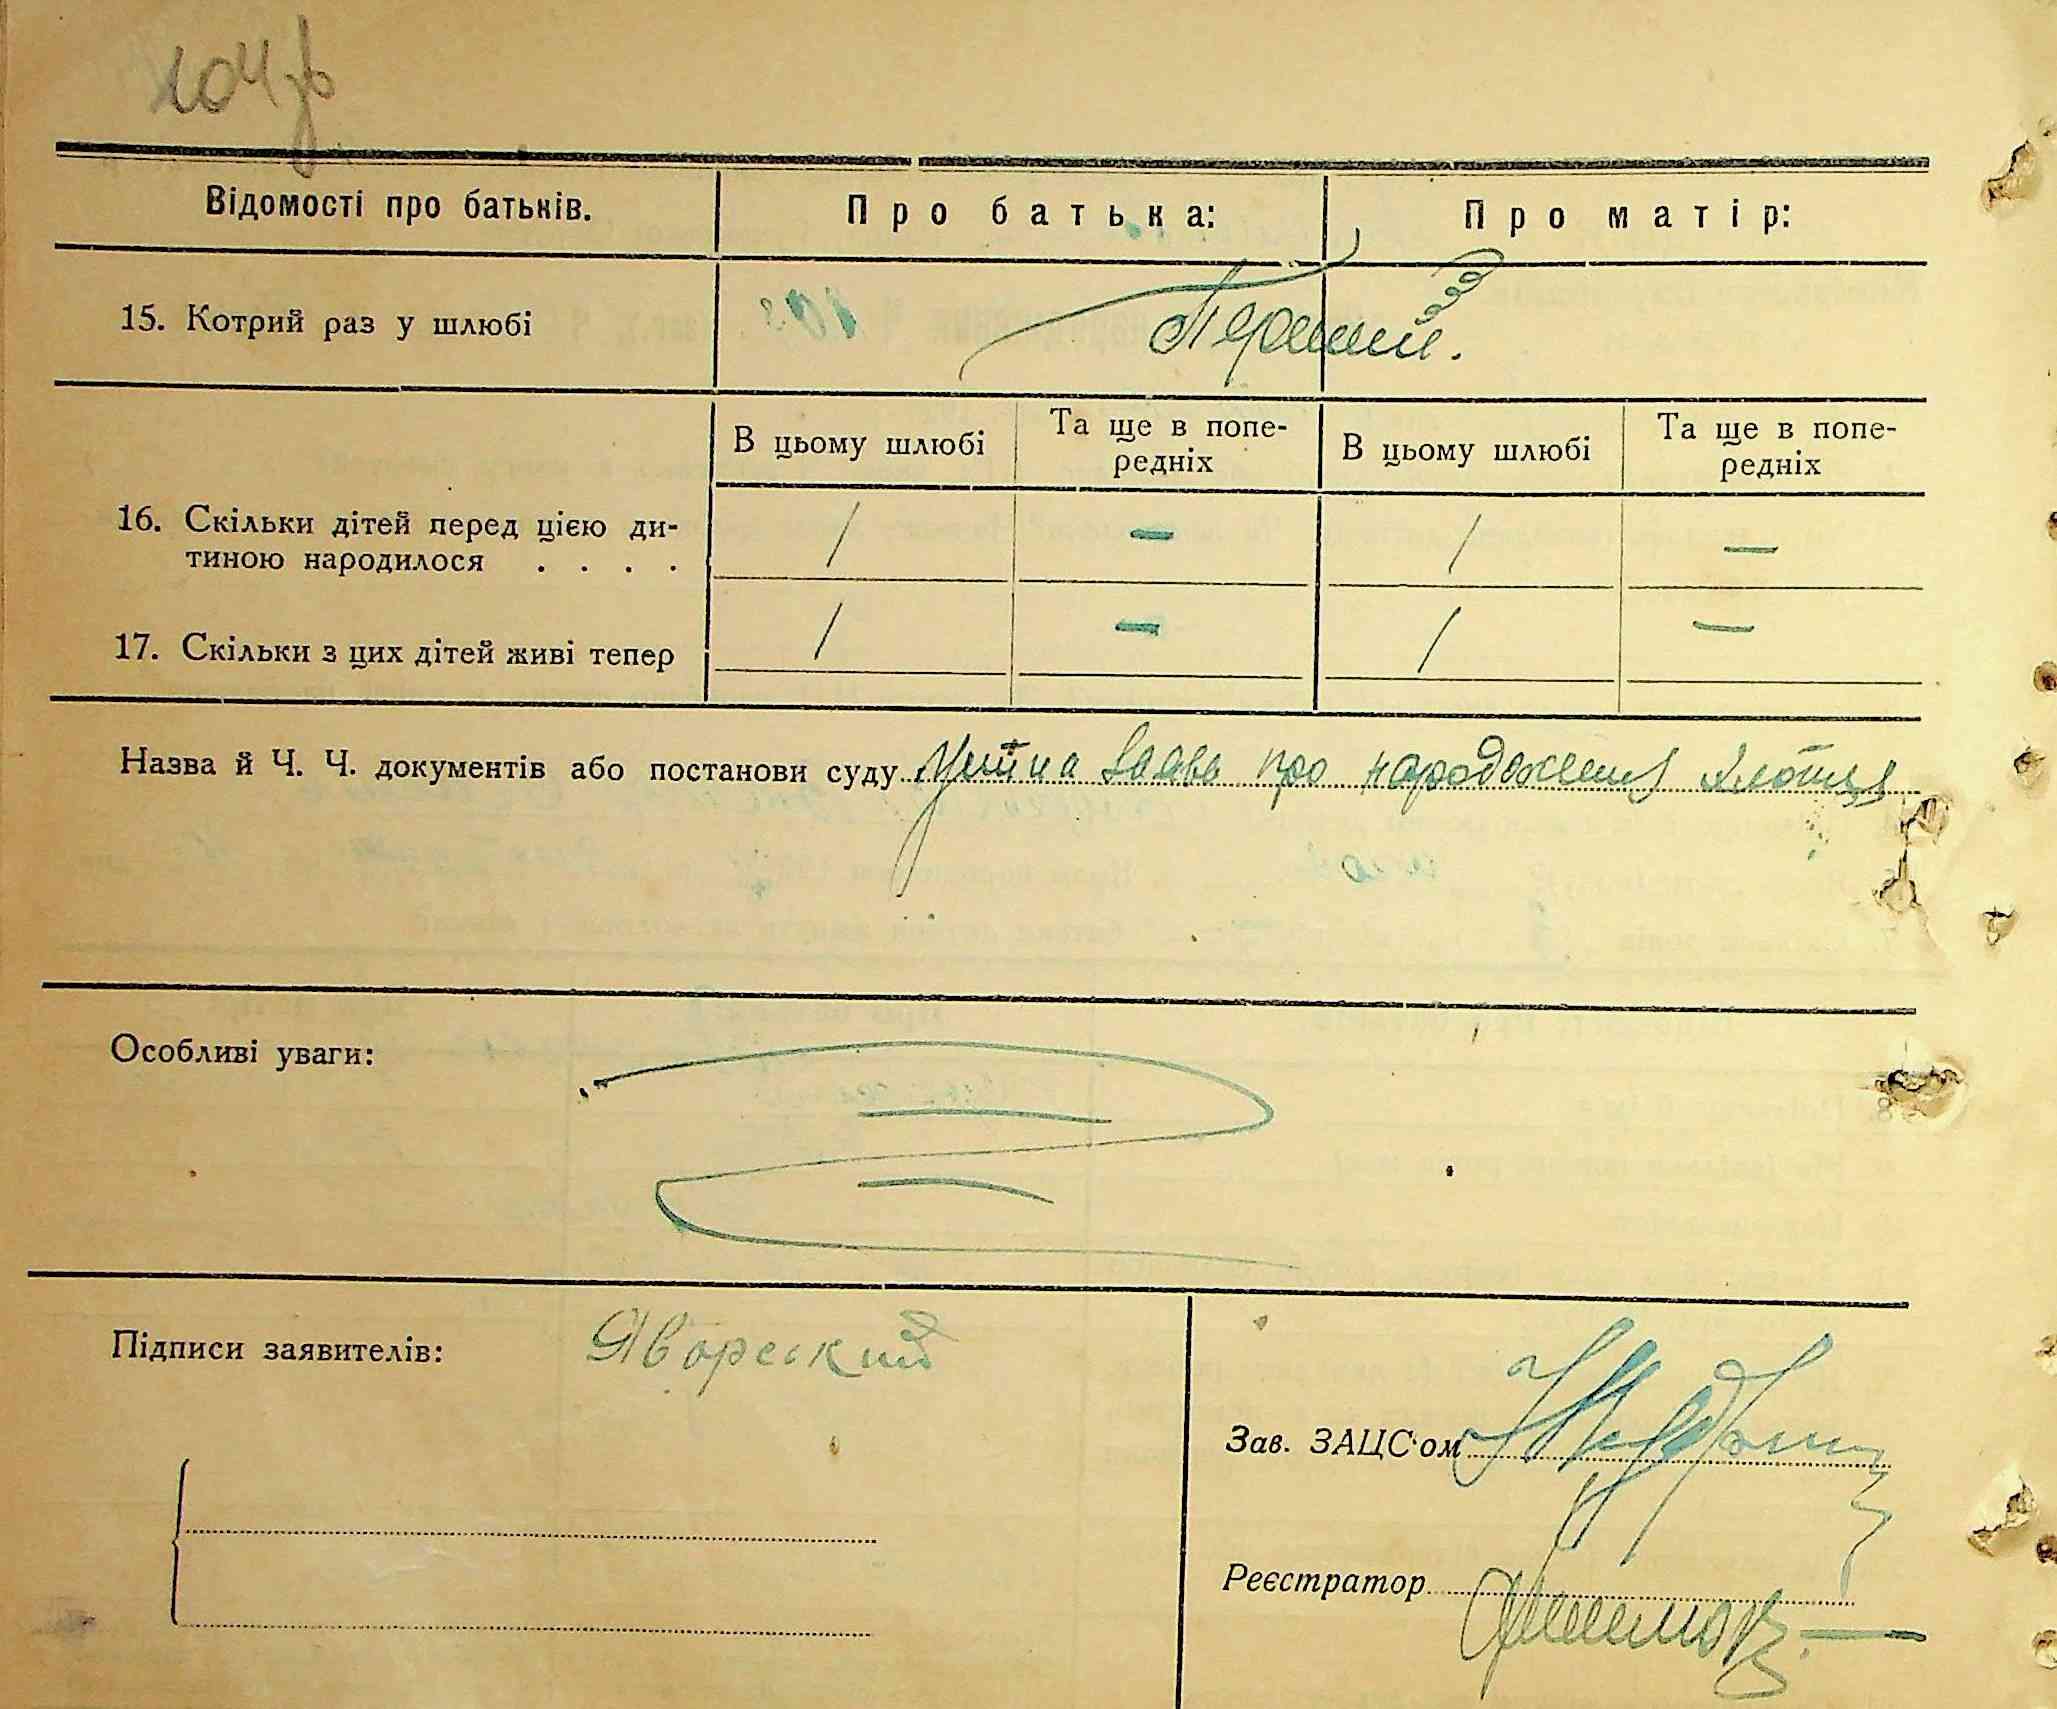 104зв
Відомості про батьків.
Про батька:
Про матір:
15. Котрий раз у шлюбі
Перший.
В цьому шлюбі
Та ще в попе-
редніх
В цьому шлюбі
Та ще в попе-
редніх
16. Скільки дітей перед цією ди-
тиною народилося . . . .
1 — 1 —
17. Скільки з цих дітей живі тепер
1 — 1 —
Назва й Ч. Ч. документів або постанови суду Устна заява про народження хлопця
Особливі уваги:
Підписи заявителів: Яворський
Зав. ЗАЦС'ом
Реєстратор